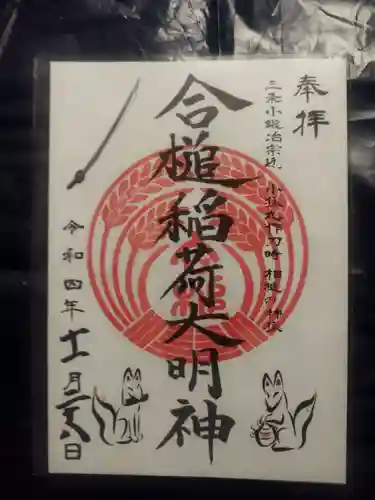 奉拝
三条小鍛冶宗近 小狐丸作刀時 相槌の神狐
合槌稲荷大明神
令和四年十一月二八日